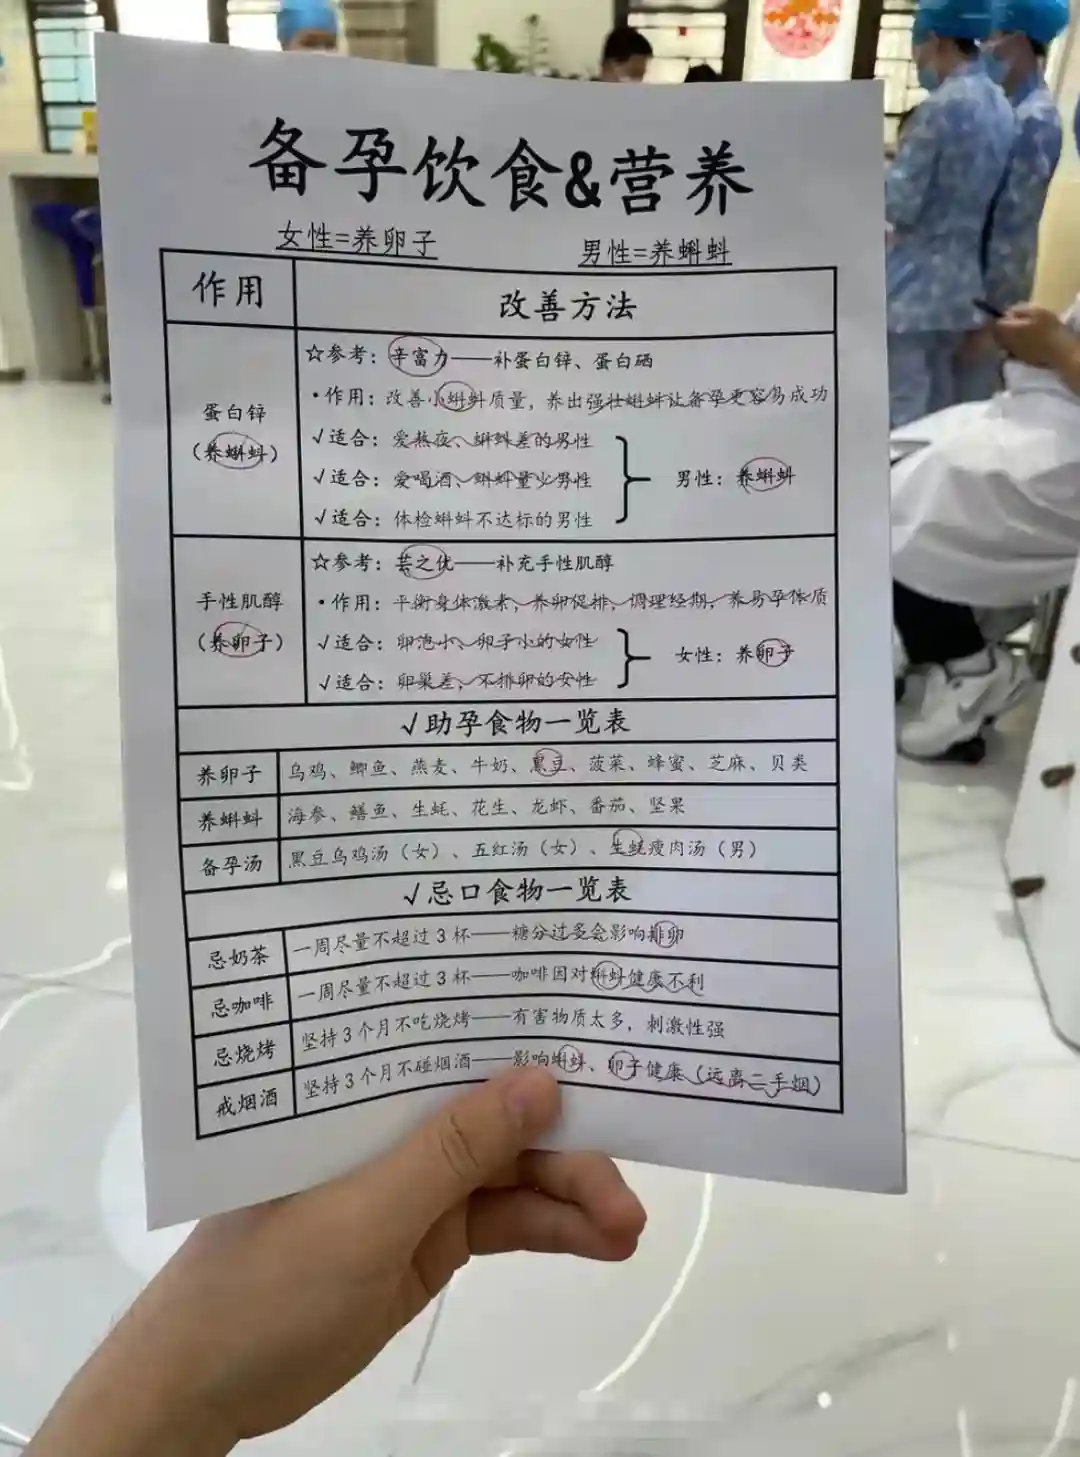 备孕饮食&营养
女性=养卵子 男性=养蝌蚪
作用 改善方法
蛋白锌
(养蝌蚪)
☆参考：辛富力——补蛋白锌、蛋白硒
·作用：改善小蝌蚪质量，养出强壮蝌蚪让备孕更容易成功
√适合：爱熬夜、蝌蚪差的男性
√适合：爱喝酒、蝌蚪量少男性
√适合：体检蝌蚪不达标的男性
男性：养蝌蚪
手性肌醇
(养卵子)
☆参考：芸之优——补充手性肌醇
·作用：平衡身体激素，养卵促排，调理经期，养易孕体质
√适合：卵泡小、卵子小的女性
√适合：卵巢差，不排卵的女性
女性：养卵子
√助孕食物一览表
养卵子 乌鸡、鲫鱼、燕麦、牛奶、黑豆、菠菜、蜂蜜、芝麻、贝类
养蝌蚪 海参、鳝鱼、生蚝、花生、龙虾、番茄、坚果
备孕汤 黑豆乌鸡汤（女）、五红汤（女）、生蚝瘦肉汤（男）
√忌口食物一览表
忌奶茶 一周尽量不超过3杯——糖分过多会影响排卵
忌咖啡 一周尽量不超过3杯——咖啡因对蝌蚪健康不利
忌烧烤 坚持3个月不吃烧烤——有害物质太多，刺激性强
戒烟酒 坚持3个月不碰烟酒——影响蝌蚪、卵子健康（远离二手烟）